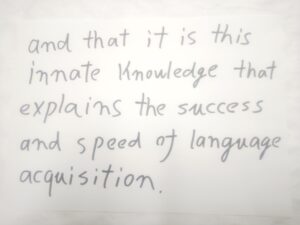 and that it is this
innate knowledge that
explains the success
and speed of language
acquisition.